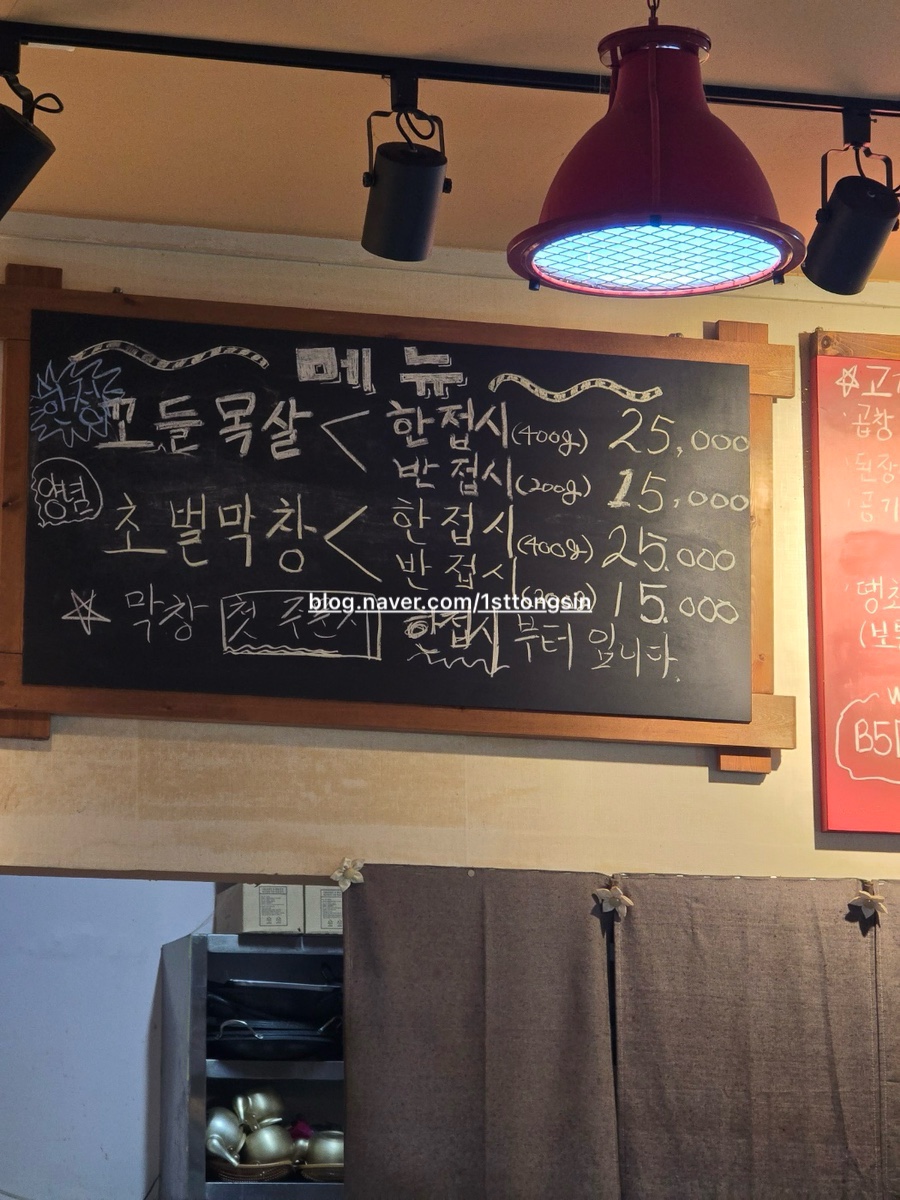 메뉴
꼬들목살 < 한접시 (400g) 25,000
반접시 (200g) 15,000
양념
초벌막창 < 한접시 (400g) 25.000
반접시 (200g) 15.000
☆ 막창 첫 주문시 한접시 부터 입니다.
blog.naver.com/1sttongsin
곱창
된장
공기
땡초